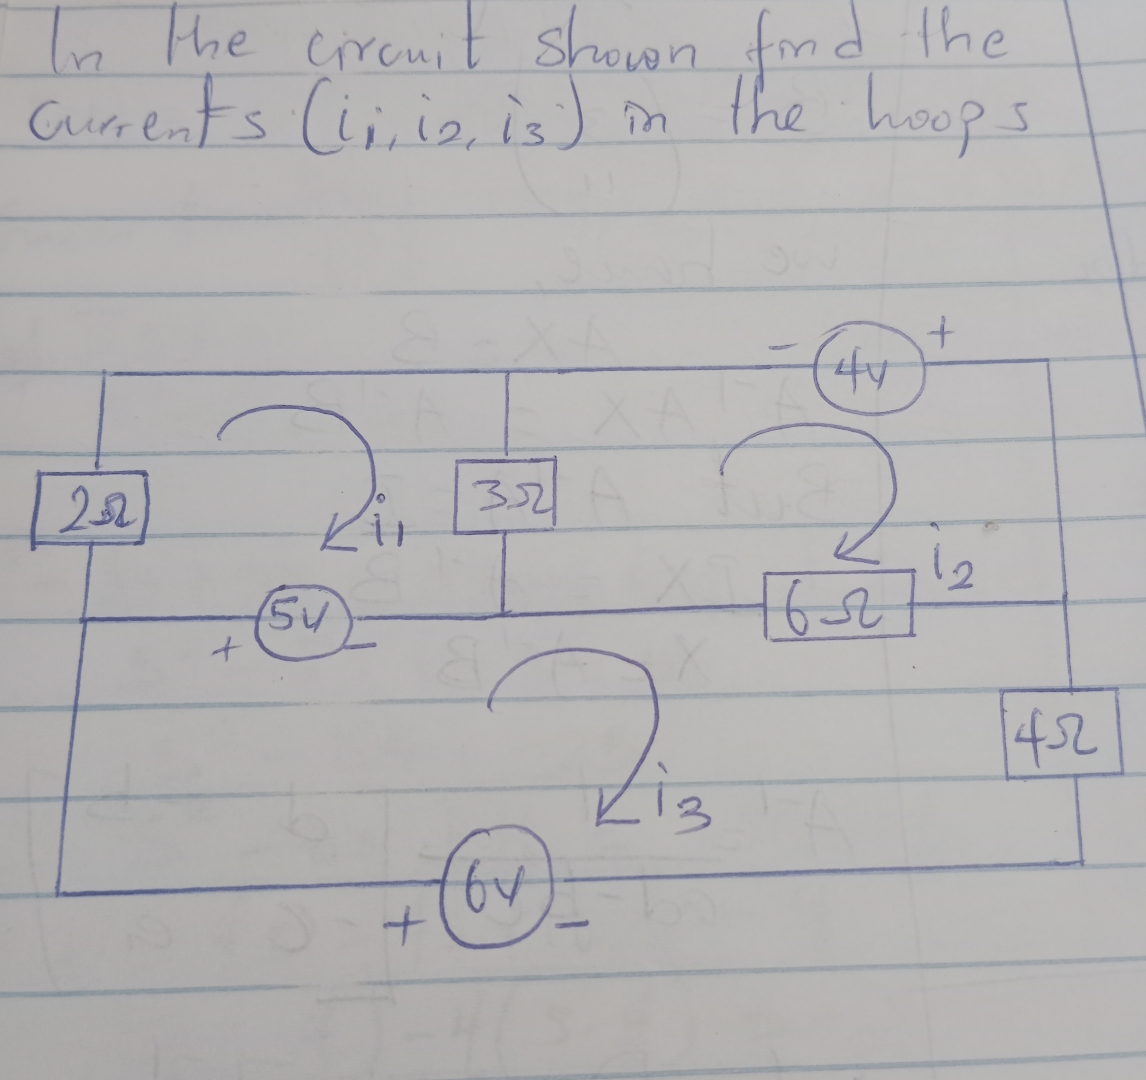 In the circuit shown find the
currents (i1, i2, i3) in the hoops
- 4v +
2Ω 3Ω
i1
i2
5v 6Ω
+ -
4Ω
i3
6v
+ -